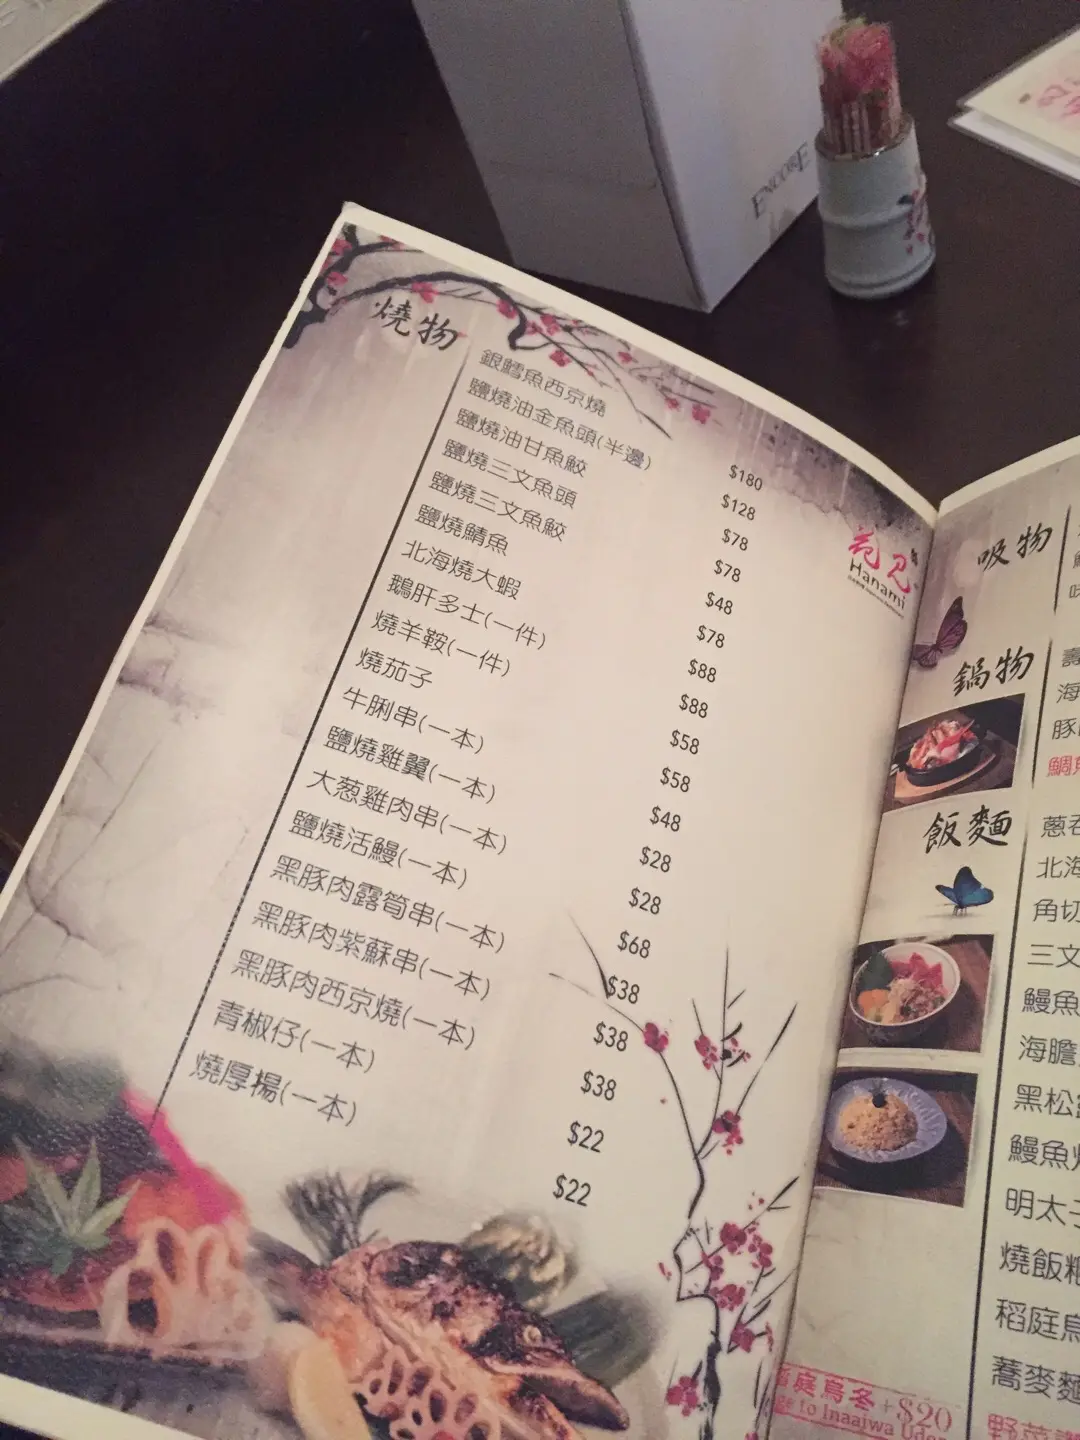 ENCORE
燒物
銀鱈魚西京燒 $180
鹽燒油金魚頭(半邊) $128
鹽燒油甘魚鮫 $78
鹽燒三文魚頭 $78
鹽燒三文魚鮫 $48
鹽燒鯖魚 $78
北海燒大蝦 $88
鵝肝多士(一件) $88
燒羊鞍(一件) $58
燒茄子 $58
牛脷串(一本) $48
鹽燒雞翼(一本) $28
大葱雞肉串(一本) $28
鹽燒活鰻(一本) $68
黑豚肉露筍串(一本) $38
黑豚肉紫蘇串(一本) $38
黑豚肉西京燒(一本) $38
青椒仔(一本) $22
燒厚揚(一本) $22
花見
Hanami
吸物
鍋物
壽
海
豚
鯛
飯麵
蔥
北海
角切
三文
鰻魚
海膽
黑松
鰻魚
明太子
燒飯
稻庭烏
蕎麥麵
野菜
庭烏冬+$20
to Inaaiwa Udon